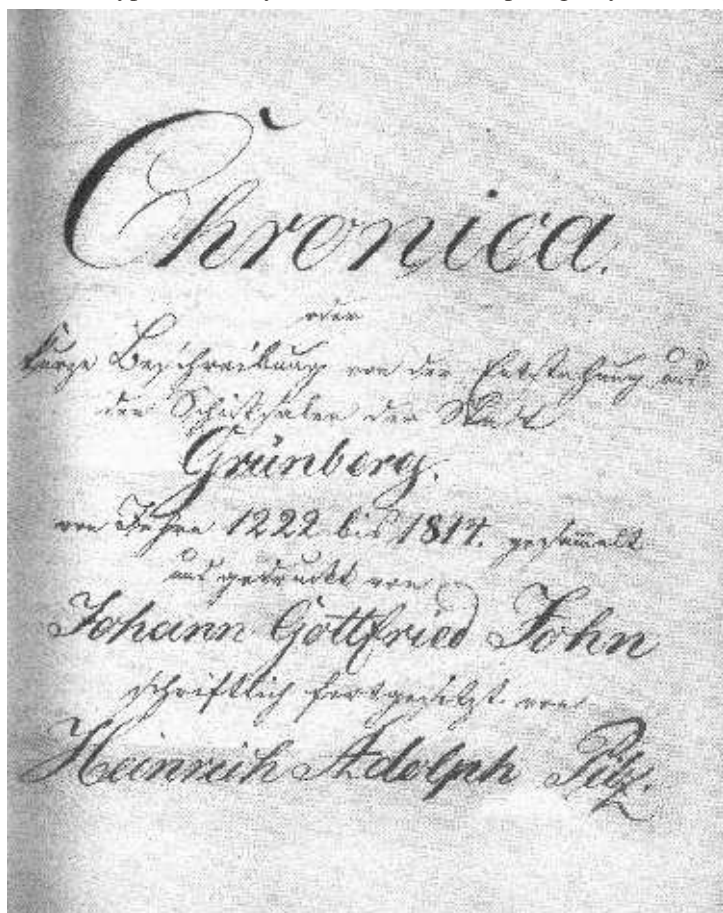 Chronica.
oder
kurze Beschreibung von der Entstehung und
den Schicksalen der Stadt
Grünberg.
von Jahren 1222 bis 1817. gesammelt
und gedruckt von
Johann Gottfried John
schriftlich fortgesetzt von
Heinrich Adolph Pilz.